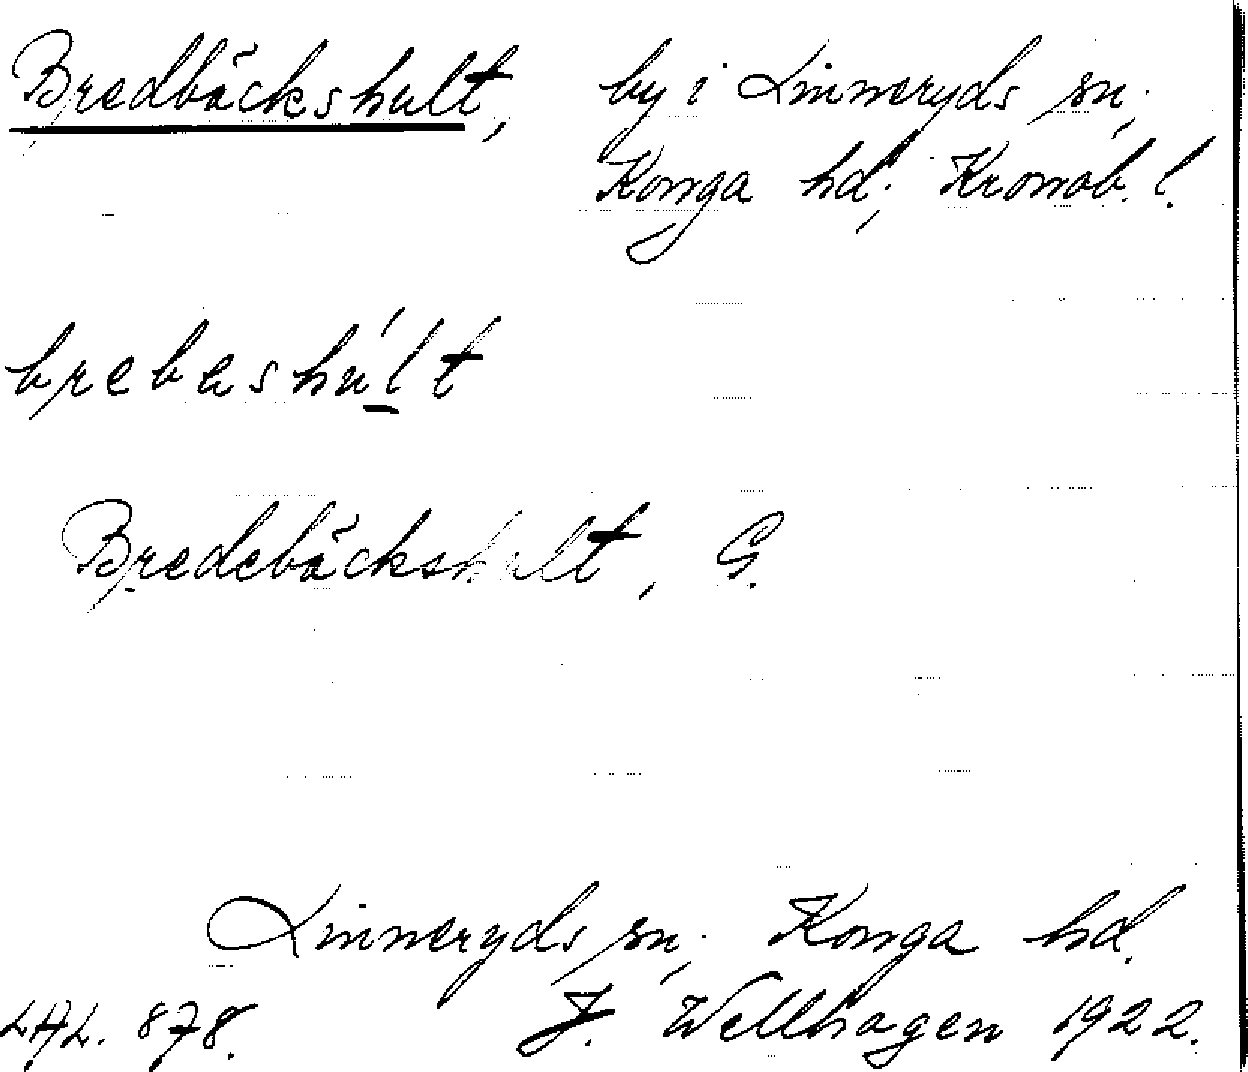 Bredbäckshult, by i Linneryds sn,
Konga hd, Kronob. l.
brebashúlt
Bredebäckshult, G.
Linneryds sn, Konga hd.
LAL. 878. J. Wellhagen 1922.